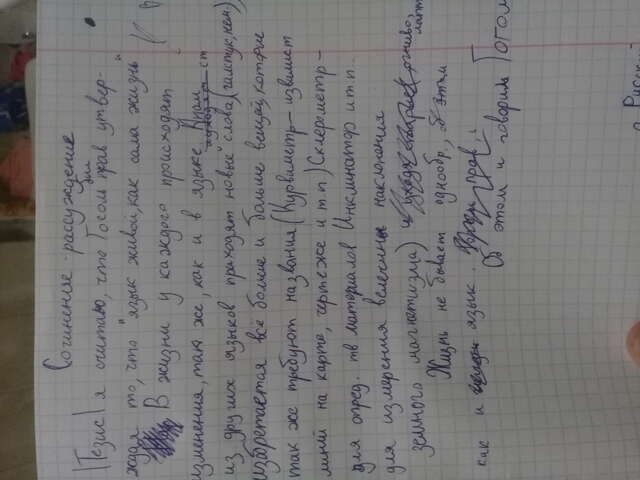 Сочинение-рассуждение
Тезис я считаю, что Гоголь был прав утвер-
ждая то, что "язык живой, как сама жизнь"
В жизни у каждого происходят
изменения, так же, как и в языке. К нам
из других языков приходят новые слова (галстук,
изобретается всё больше и больше вещей, которые
так же требуют названия (Курвиметр - измеряет
линии на карте, чертеже и т.п) Склерометр -
для опред. тв материалов Инклинатор и т.п.
для измерения величины наклонения
земного магнетизма)
Жизнь не бывает однообр,
как и язык.
Об этом и говорил Гоголь
Русский